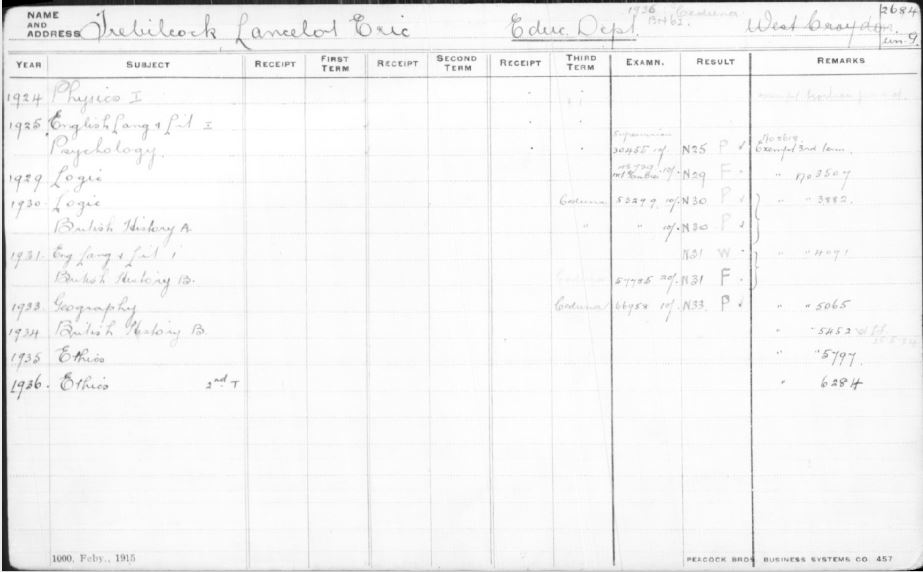 NAME AND ADDRESS Trebilcock Lancelot Eric Educ. Dept. 1936 Ceduna West Croydon. 2684
YEAR SUBJECT RECEIPT FIRST TERM RECEIPT SECOND TERM RECEIPT THIRD TERM EXAMN. RESULT REMARKS
1924 Physics I
1925 English Lang & Lit I
Psychology 30455 10/- N25 P Exempt 3rd term.
1929 Logic 10/- N29 F " No 3507
1930 Logic Ceduna 53299 10/- N30 P " " 3882
British History A " " 10/- N30 P
1931 Eng Lang & Lit I N31 W " " 4071
British History B. Ceduna 57785 20/- N31 F
1933 Geography Ceduna 66958 10/- N33 P " " 5065
1934 British History B " " 5452
1935 Ethics " " 5797
1936 Ethics 2nd T " 6284
1000, Feby., 1915 PEACOCK BROS. BUSINESS SYSTEMS CO 457